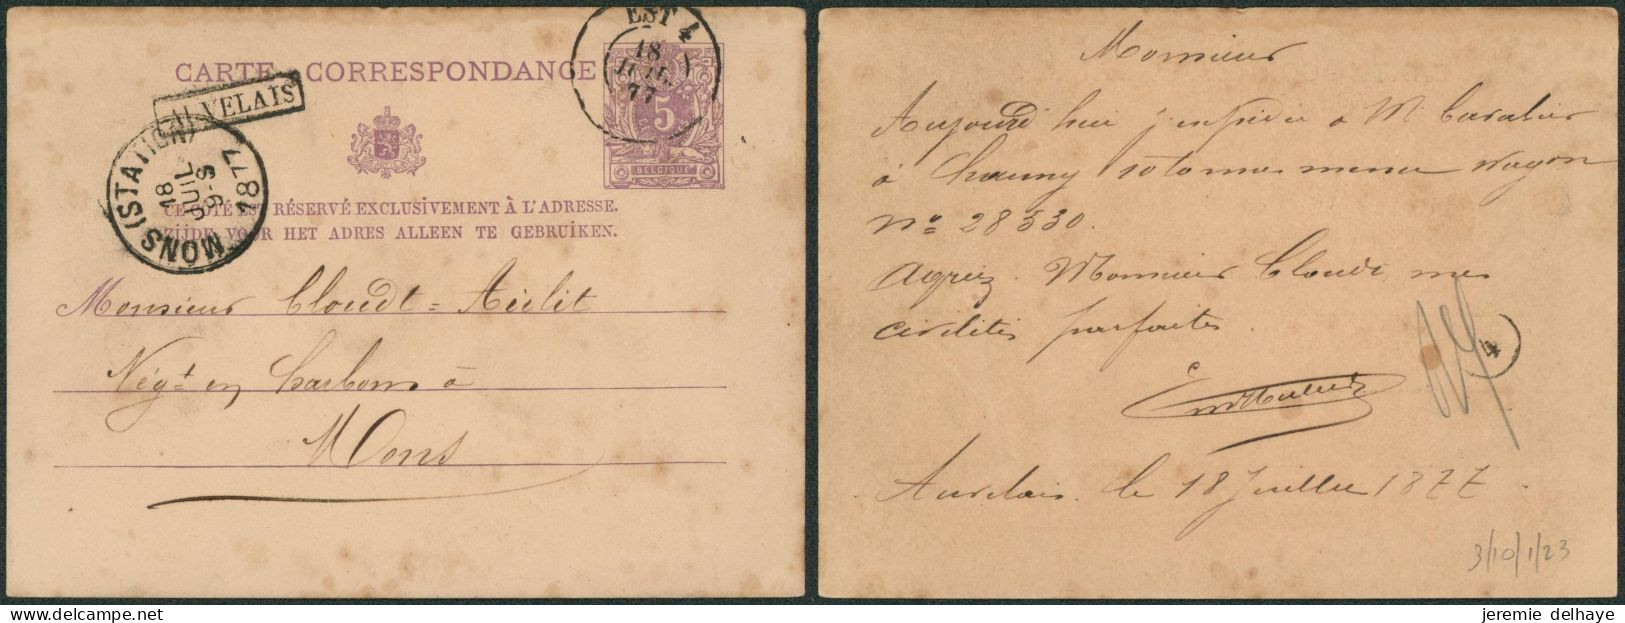 CARTE CORRESPONDANCE
EST 4
18
JUIL
77
5
BELGIQUE
MONS (STATION)
18
JUIL
1877
CE CÔTÉ EST RÉSERVÉ EXCLUSIVEMENT À L'ADRESSE.
ZIJDE VOOR HET ADRES ALLEEN TE GEBRUIKEN.
Monsieur Cloudt =
Négt en Charbons à
Mons
Monsieur
Aujourd'hui j'expédie à Mr Cavalier
à Chauny 10 tonnes menu wagon
No 28530.
Agréez Monsieur Cloudt, mes
civilités parfaites.
4
Auvelais le 18 Juillet 1877.
3/10/1/23
jeremie delhaye